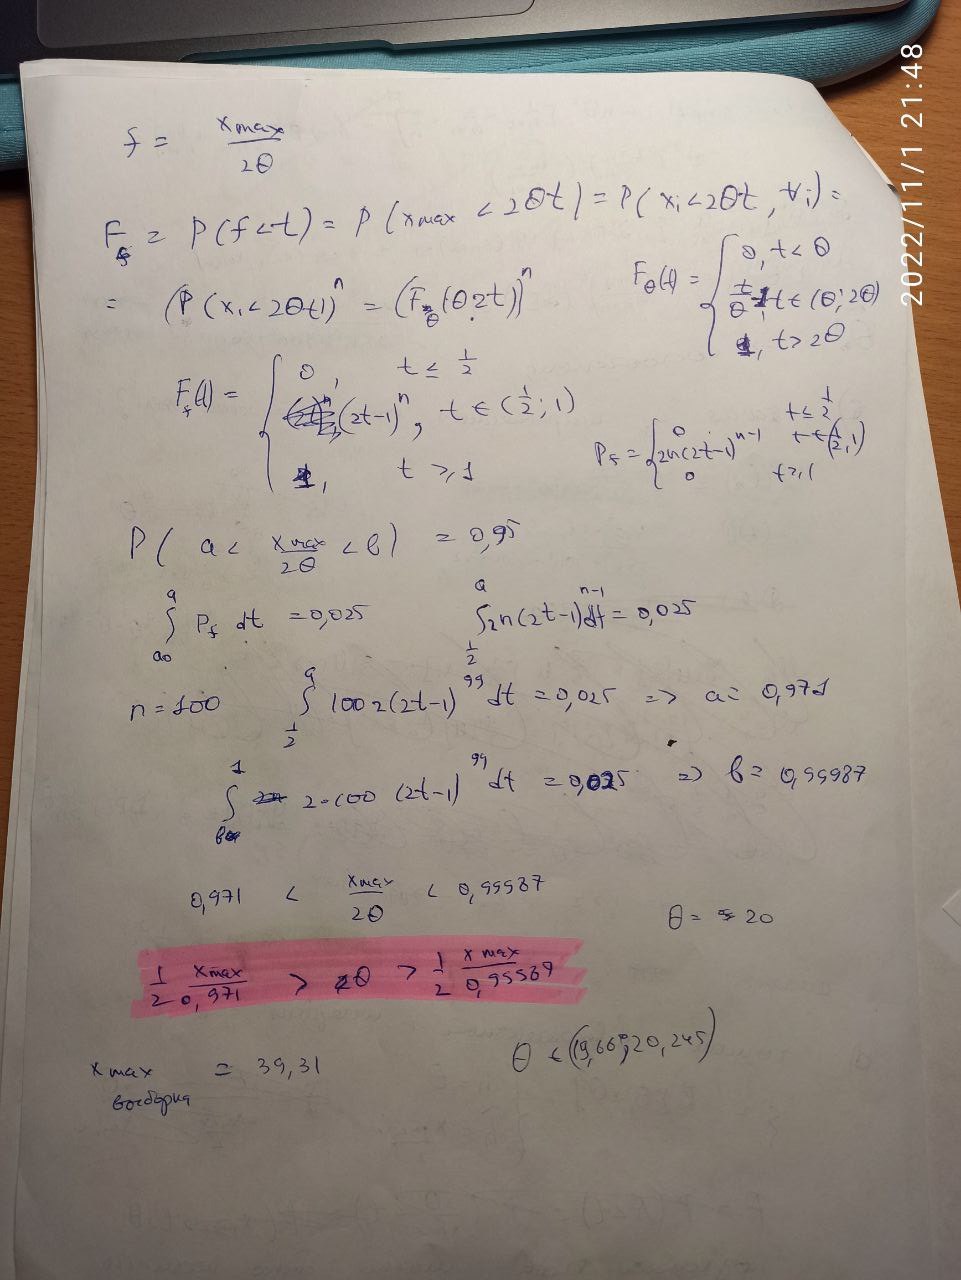 f = xmax / 2θ
F_f = P(f<t) = P(xmax < 2θt) = P(xi<2θt, ∀i) =
= (P(xi<2θt))^n = (F_θ(θ2t))^n
F_θ(t) = { 0, t<θ
t/θ -1, t ∈ (θ; 2θ)
1, t > 2θ
F_f(t) = { 0, t ≤ 1/2
(2t-1)^n, t ∈ (1/2; 1)
1, t ≥ 1
P_f = { 0 t ≤ 1/2
2n(2t-1)^{n-1} t ∈ (1/2, 1)
0 t ≥ 1
P( a < xmax / 2θ < b) = 0,95
∫ P_f dt = 0,025
∫_{1/2}^{a} 2n(2t-1)^{n-1} dt = 0,025
n = 100
∫_{1/2}^{a} 100 2(2t-1)^{99} dt = 0,025 => a = 0,971
∫_{b}^{1} 2·100 (2t-1)^{99} dt = 0,025 => b = 0,99987
0,971 < xmax / 2θ < 0,99987
θ = 20
1/2 xmax / 0,971 > θ > 1/2 xmax / 0,99987
xmax = 39,31
θ ∈ (19,66; 20,245)
2022/11/1 21:48